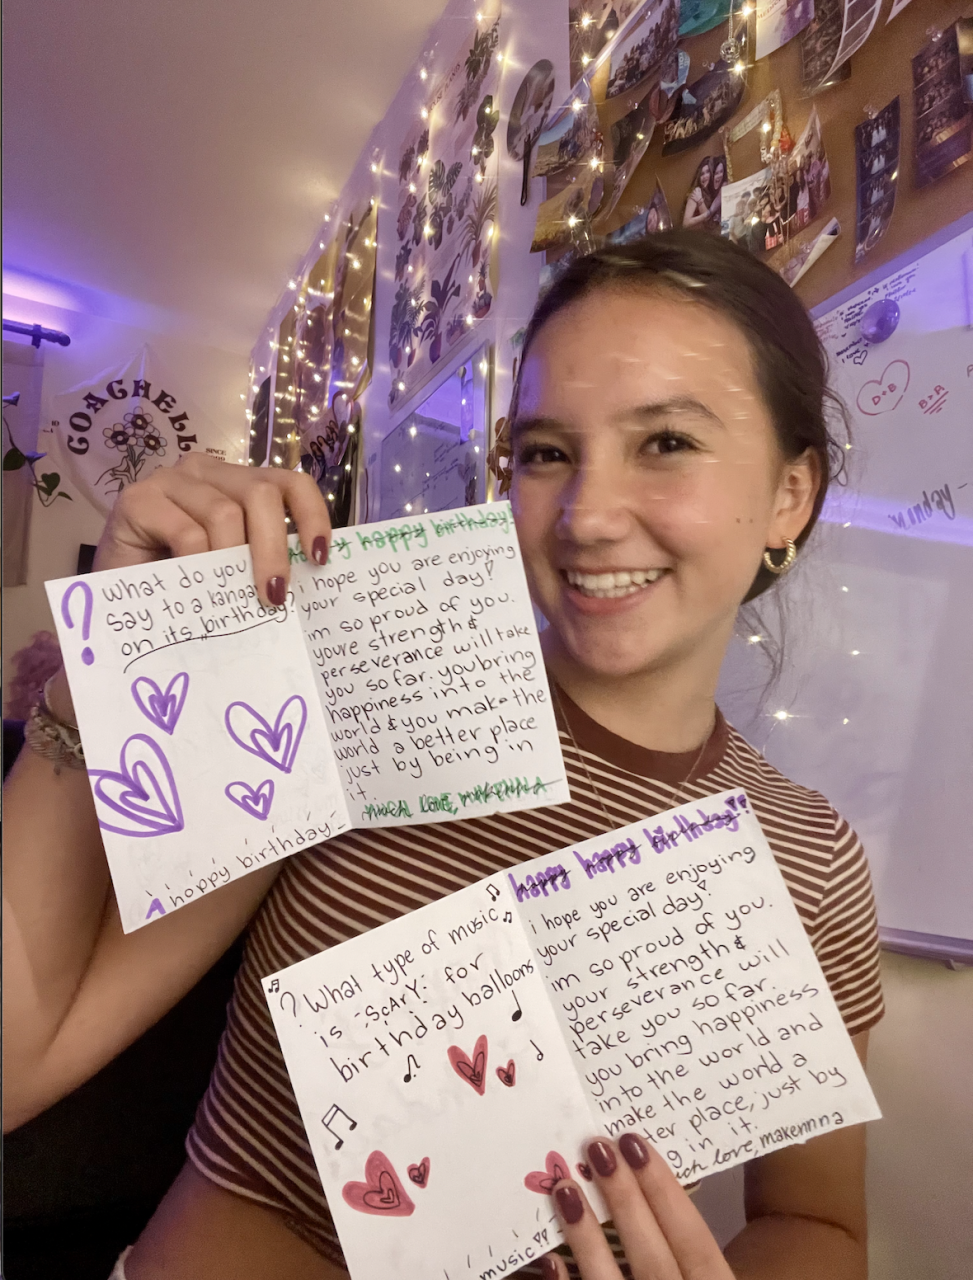 COACHELL
SINCE
D+B
B>A
? What do you
say to a kanga
on its birthday?
A hoppy birthday
happy birthday!
i hope you are enjoying
your special day!
im so proud of you.
youre strength &
perseverance will take
you so far. you bring
happiness into the
world & you make the
world a better place
just by being in
it.
much love, makenna
? What type of music
is SCARY for
birthday balloons
music
happy happy birthday!
i hope you are enjoying
your special day!
im so proud of you.
your strength &
perseverance will
take you so far.
you bring happiness
into the world and
make the world a
ter place, just by
g in it.
ch love, makennna